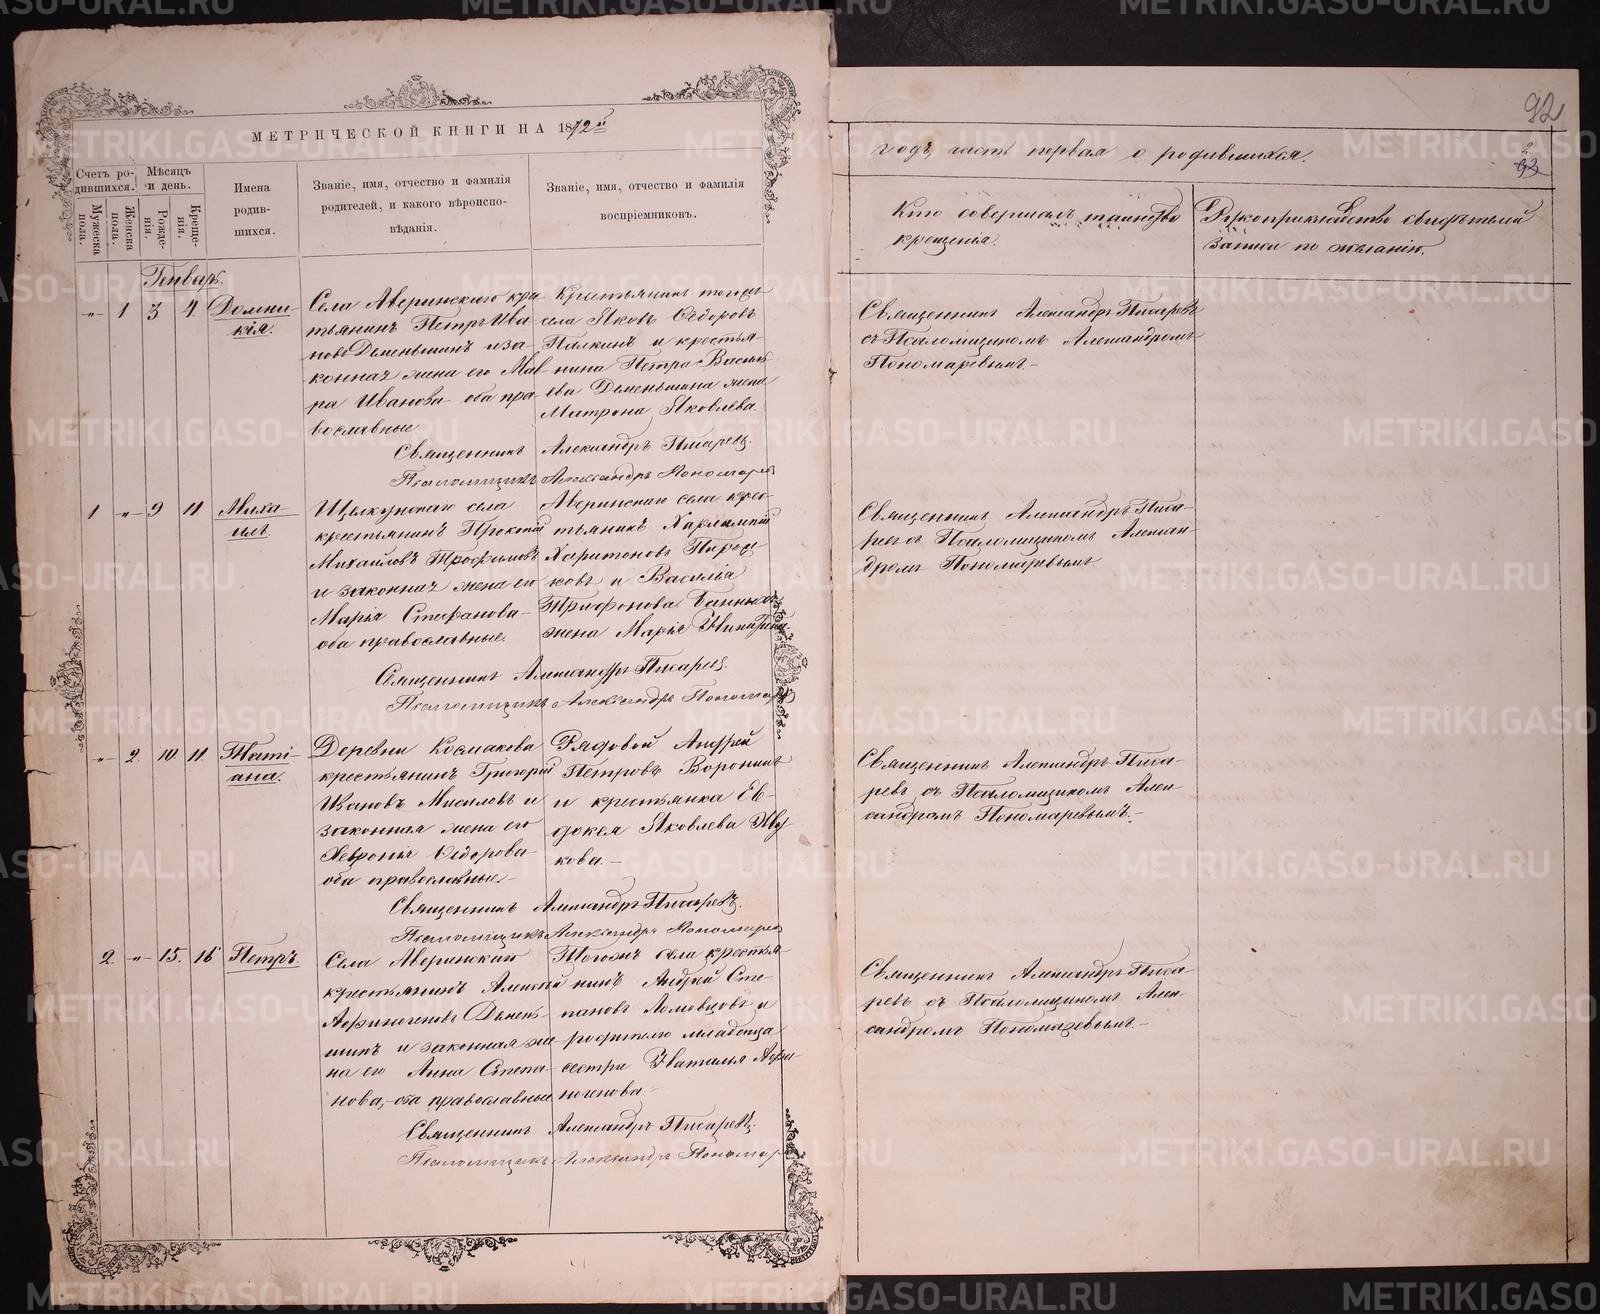 МЕТРИЧЕСКОЙ КНИГИ НА 1872й
годъ, часть первая о родившихся.
92
Счетъ родившихся.
Мужеска пола.
Женска пола.
Мѣсяцъ и день.
Рожденія.
Крещенія.
Имена
родив-
шихся.
Званіе, имя, отчество и фамилія
родителей, и какого вѣроиспо-
вѣданія.
Званіе, имя, отчество и фамилія
воспріемниковъ.
Кто совершалъ таинство
крещенія.
Рукоприкладство свидѣтелей
записи по желанію.
Генварь.
-"- 1 3 4
Домни-
кія.
Села Аверинскаго кре-
тьянинъ Петръ Ива
новъ Деменьшинъ и за-
конная жена его Мав
ра Иванова оба пра-
вославные
Крестьянинъ тогожъ
села Яковъ Ѳедоровъ
Палкинъ и крестья-
нина Петра Василь
ева Деменьшина жена
Матрона Яковлева
Священникъ Александръ Писаревъ.
Псаломщикъ Александръ Пономарев
Священникъ Александръ Писаревъ
съ Псаломщикомъ Александромъ
Пономаревымъ.-
1 -"- 9 11
Миха-
илъ.
Щелкунскаго села
крестьянинъ Прокопій
Михайловъ Трофимовъ
и законная жена его
Марія Стефанова
оба православные.
Аверинскаго села крес-
тьянинъ Харлампій
Харитоновъ
ковъ и Василія
Трифонова
жена Марѳа
Священникъ Александръ Писаревъ.
Псаломщикъ Александръ Пономарев
Священникъ Александръ Писа-
ревъ съ Псаломщикомъ Алексан-
дромъ Пономаревымъ.
-"- 2. 10. 11.
Тати-
ана.
Деревни Космакова
крестьянинъ Григорій
Ивановъ Мисиловъ и
законная жена его
Ѳевронія Сидорова
оба православные.-
Рядовой Андрей
Петровъ Воронинъ
и крестьянка Ев-
докея Яковлева
кова.-
Священникъ Александръ Писаревъ.
Псаломщикъ Александръ Пономарев
Священникъ Александръ Писа-
ревъ съ Псаломщикомъ Алек-
сандромъ Пономаревымъ.-
2. -"- 15. 16
Петръ.
Села Аверинскаго
крестьянинъ Алексѣй
Афиногеновъ Демень-
шинъ и законная же
на его Анна Степа-
нова,- оба православные
Тогожъ села крестья-
нинъ Андрей Сте-
пановъ Ломовцовъ и
родителю младенца
сестра Наталья Афи
ногенова-
Священникъ Александръ Писаревъ.
Псаломщикъ Александръ Пономар
Священникъ Александръ Писа-
ревъ съ Псаломщикомъ Алек-
сандромъ Пономаревымъ.-
METRIKI.GASO-URAL.RU